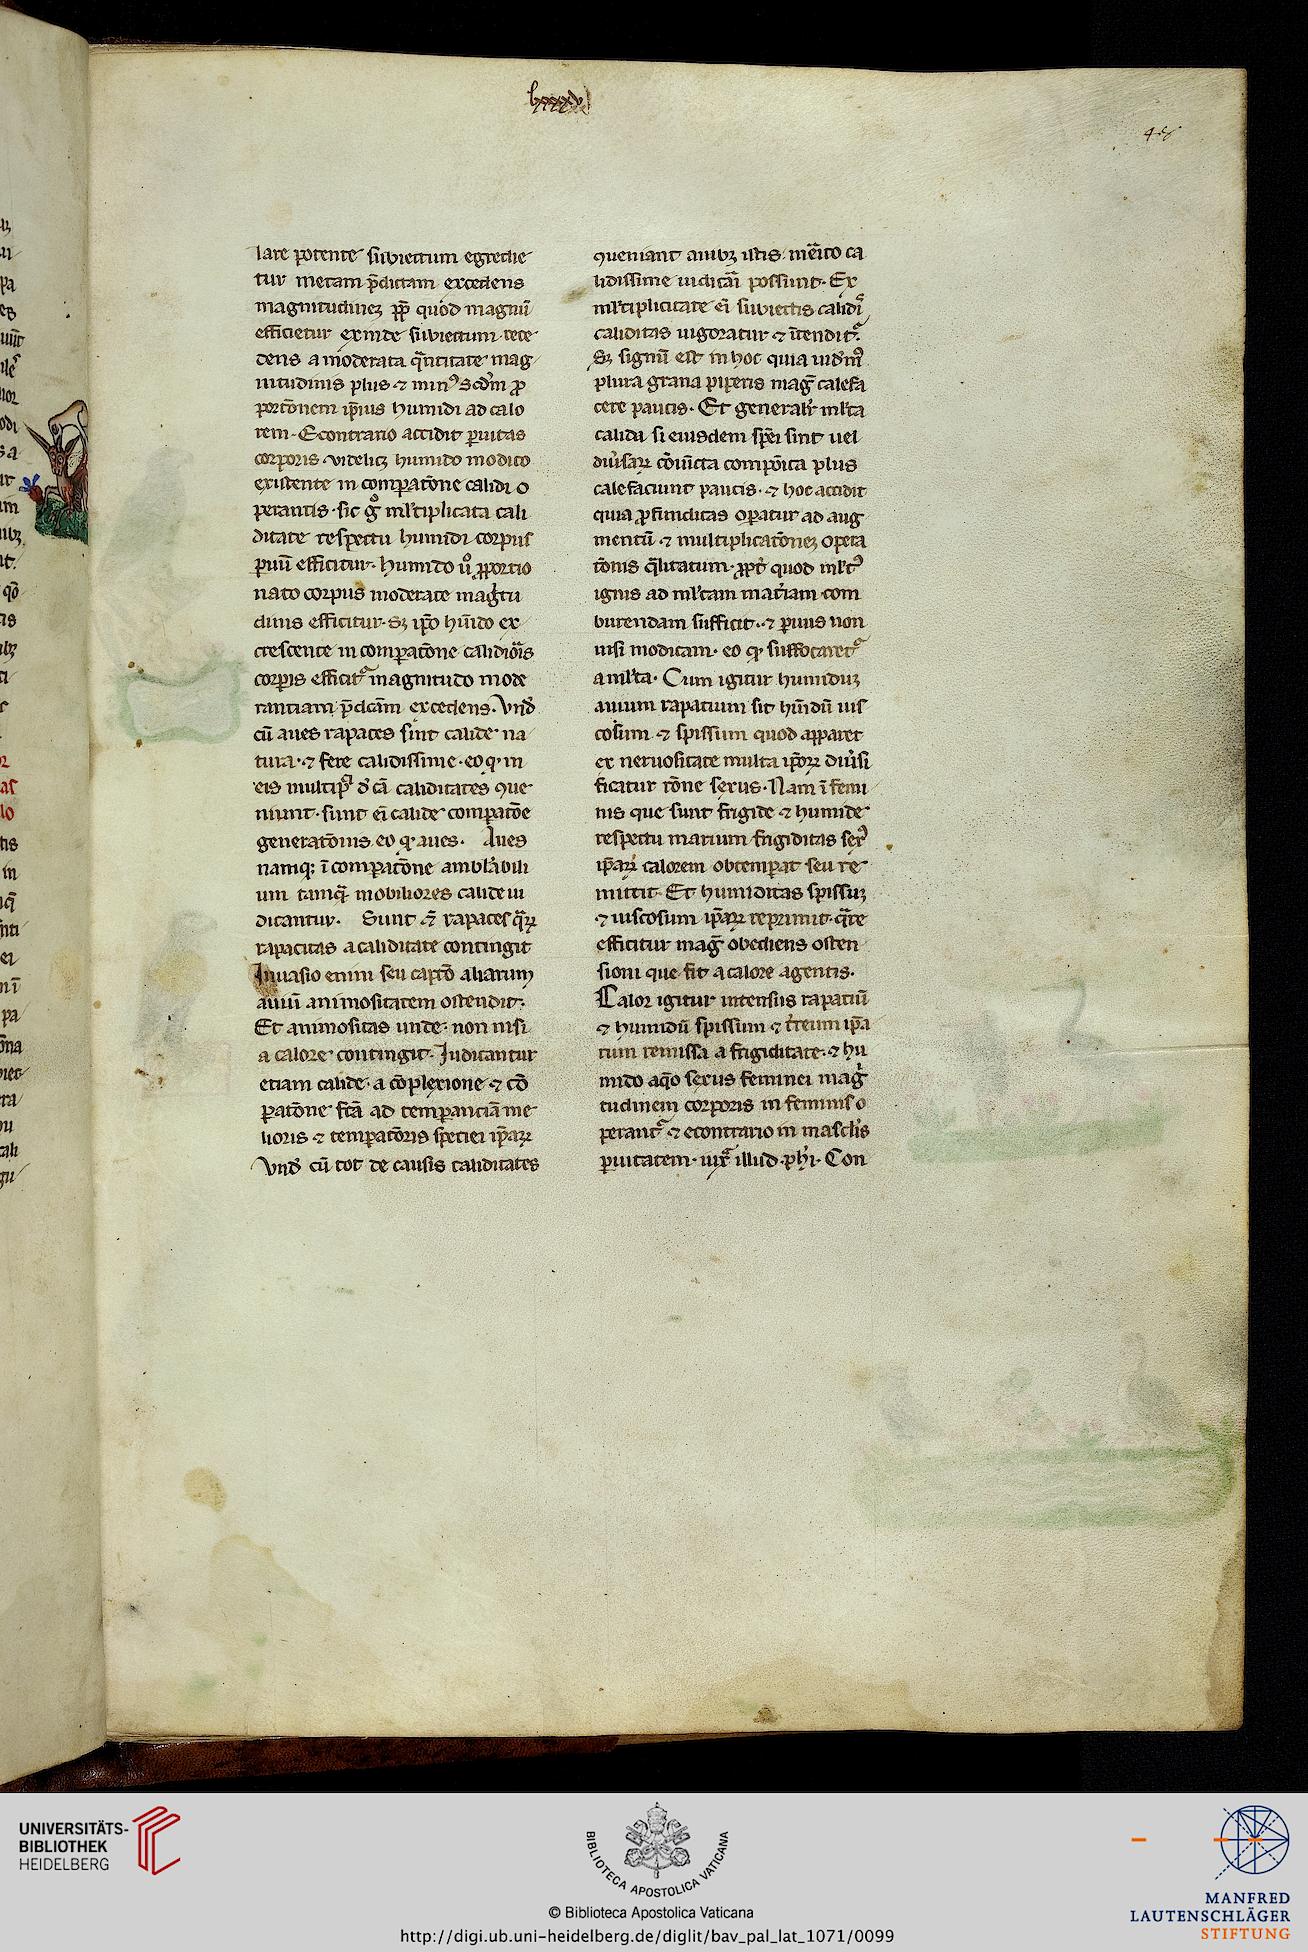 lxxxxv
lare potente subiectum egredie
tur metam p̄dictam excedens
magnitudinez ꝓpt̄ quod magnū
efficietur exinde subiectum rece
dens a moderata q̄ntitate mag
nitudinis plus ⁊ min⁹ scd̄m ꝓ
portōnem ip̄ius humidi ad calo
rem. Econtrario accidit ꝑuitas
corporis uidelicꝫ humido modico
existente in comparatōne calidi o
perantis. sic g̊ ml̄tiplicata cali
ditate respectu humidi corpus
ꝑuū efficitur. humido ů ꝓportio
nato corpus moderate mag̃tu
dinis efficitur. Sꝫ ip̄o hūido ex
crescente in comparatōne calidioīs
corꝑis efficit᷑ magnitudo mode
rantiam p̄dc̄am excedens. Vnď
cū aues rapaces sint calide na
tura. ⁊ fere calidissime. eo ꝙ in
eis multip̄l de cā caliditates que
niunt. sunt eī calide comparatōe
generatōnis eo ꝙ aues. Aues
namqꝫ ī comparatōne amblabili
um tamq̄ mobiliores calide iu
dicantur. Sunt ⁊ rapaces q̄ꝝ
rapacitas a caliditate contingit
Inuasio enim seu captō aliarum
auiū animositatem ostendit.
Et animositas unde. non nisi
a calore contingit. Iudicantur
etiam calide. a cōplexione ⁊ cō
ꝑatōne fc̄a ad temperanciā me
lioris ⁊ temperatōris speciei ip̄aꝝ
Vnď cū tot de causis caliditates
queniant auibꝫ istis m̄ito ca
lidissime iudicāi possunt. Ex
ml̄tiplicitate eī subiectis calidi᷑
caliditas uigoratur ⁊ ītendit᷑.
Sꝫ signū est in hoc quia uidem⁹
plura grana piperis mag̃ calefa
cere paucis. Et generalr̄ ml̄ta
calida si eiusdem sp̄ei sint uel
diũsaꝝ cōiūcta compōita plus
calefaciunt paucis. ⁊ hoc accidit
quia ꝓfunditas oꝑatur ad aug
mentū ⁊ multiplicatōnez opera
tōnis q̄litatum. ꝓpt̄ quod ml̄t⁹
ignis ad ml̄tam mat̄iam com
burendam sufficit. ⁊ ꝑuus non
nisi modicam. eo ꝙ suffocaret᷑
a ml̄ta. Cum igitur humiduꝫ
auium rapatium sit hūidū uis
cosum ⁊ spissum quod apparet
ex neruositate multa ip̄oꝝ diũsi
ficatur rōne sexus. Nam ī femi
nis que sunt frigide ⁊ humide
respectu marium frigiditas sex⁹
ip̄aꝝ calorem obtemperat seu re
mittit. Et humiditas spissuꝫ
⁊ uiscosum ip̄aꝝ reprimit. q̄re
efficitur mag̃ obediens osten
sioni que fit a calore agentis.
Calor igitur intensus rapatiū
⁊ humidū spissum ⁊ t̄reum ip̄a
rum remissa a frigiditate. ⁊ hu
mido aq̄o sexus feminei mag̃
tudinem corporis in feminis o
perant᷑ ⁊ econtrario in masclis
ꝑuitatem. iux̄ illud ph̄i. Con
UNIVERSITÄTS-
BIBLIOTHEK
HEIDELBERG
BIBLIOTECA APOSTOLICA VATICANA
© Biblioteca Apostolica Vaticana
http://digi.ub.uni-heidelberg.de/diglit/bav_pal_lat_1071/0099
MANFRED
LAUTENSCHLÄGER
STIFTUNG